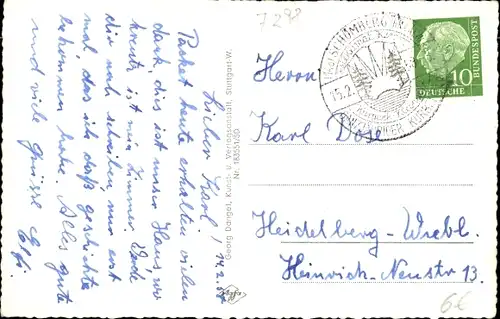 Lieber Karl! 14.2.57
Paket heute erhalten vielen
dank, dies ist unser Haus, wo
kreutz ist mein Zimmer. Werde
dir noch schreiben nur erst
mal, das ich daß geschickte
bekommen habe. Alles gute
und viele Grüsse Elfi.
Georg Dangel, Kunst- u. Verlagsanstalt, Stuttgart-W.
Nr. 18355/20
7298
DEUTSCHE BUNDESPOST
10
15.2.
Herrn
Karl Dose
Heidelberg-Wiebl.
Heinrich-Neustr 13.
6€